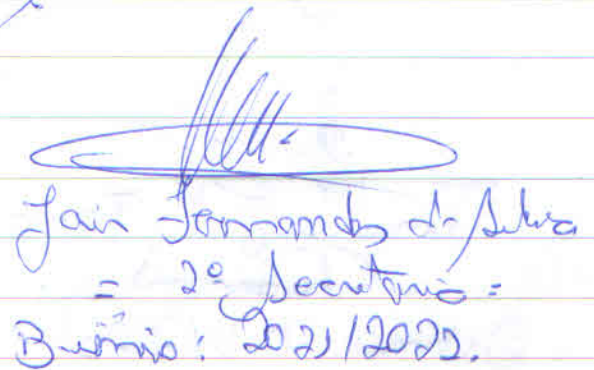 Jair Fernandes da Silva
= 2º Secretário =
Biênio: 2021/2022.